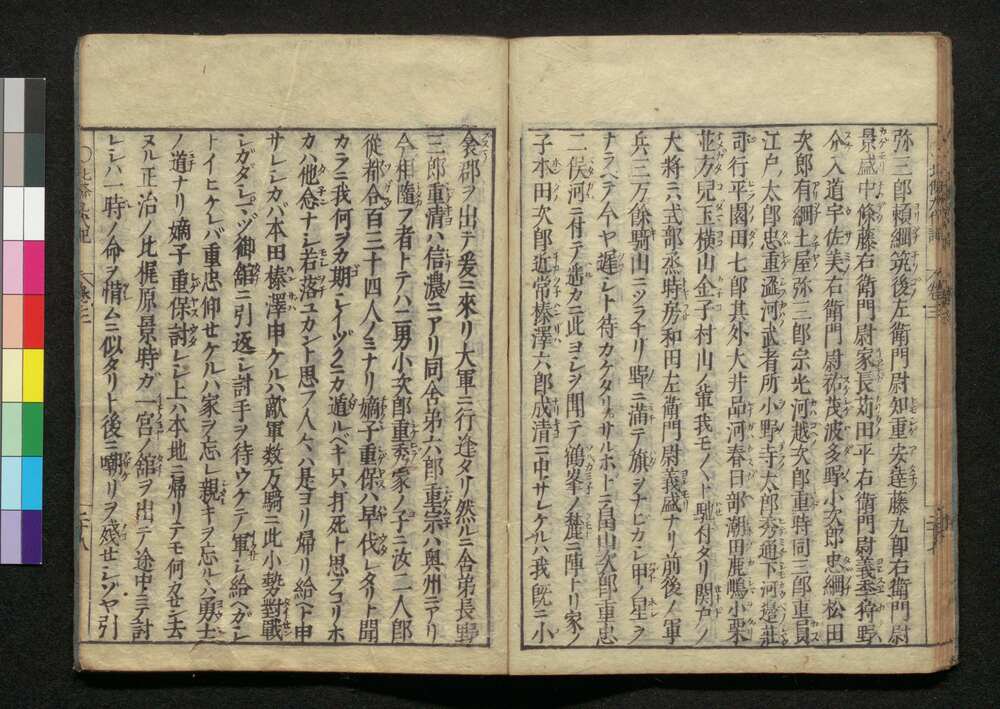 弥三郎頼綱筑後左衛門尉知重安達藤九郎右衛門尉
景盛中條藤右衛門尉家長苅田平右衛門尉義季狩野
介入道宇佐美右衛門尉祐茂波多野小次郎忠綱松田
次郎有綱土屋弥三郎宗光河越次郎重時同三郎重員
江戸太郎忠重澁河武者所小野寺太郎秀通下河邊庄
司行平園田七郎其外大井品河春日部潮田鹿嶋小栗
並方兒玉横山金子村山ノ輩我モノヽト馳付タリ関戸ノ
大将ニハ式部丞時房和田左衛門尉義盛ナリ前後ノ軍
兵三万餘騎山ニツラナリ野ニ満テ旗ヲナヒカシ甲ノ星ヲ
ナラヘテ今ヤ遅シト待カケタリサルホトニ畠山次郎重忠
二俣河ニ付テ遥カニ此ヨシヲ聞テ鶴峯ノ麓ニ陣トリ家ノ
子本田次郎近常榛澤六郎成清ニ申サレケルハ我既ニ小
衾郡ヲ出テ爰ニ來リ大軍ニ行逢タリ然ルニ舎弟長野
三郎重清ハ信濃ニアリ同舎弟六郎重宗ハ奥州ニアリ
今相隨フ者トテハ二男小次郎重秀家ノ子ニ汝二人郎
從都合百三十四人ノミナリ嫡子重保ハ早伐レタリト聞
カラニ我何ヲカ期シイツクニカ遁ルベキ只打死ト思フコリホ
カハ他念ナシ若落ユカント思フ人々ハ是ヨリ帰リ給ヘト申
サレシカバ本田榛澤申ケルハ敵軍数万騎ニ此小勢對戦
シガダシマヅ御舘ニ引返シ討手ヲ待ウケテ軍シ給ヘカシ
トイヒケレバ重忠仰セケルハ家ヲ忘レ親キヲ忘ルハ勇士
ノ道ナリ嫡子重保討レシ上ハ本地ニ帰リテモ何カセン去
ヌル正治ノ比梶原景時ガ一宮ノ舘ヲ出テ途中ニテ討
レシハ一時ノ命ヲ惜ムニ似タリト後ニ嘲リヲ残セシゾヤ引